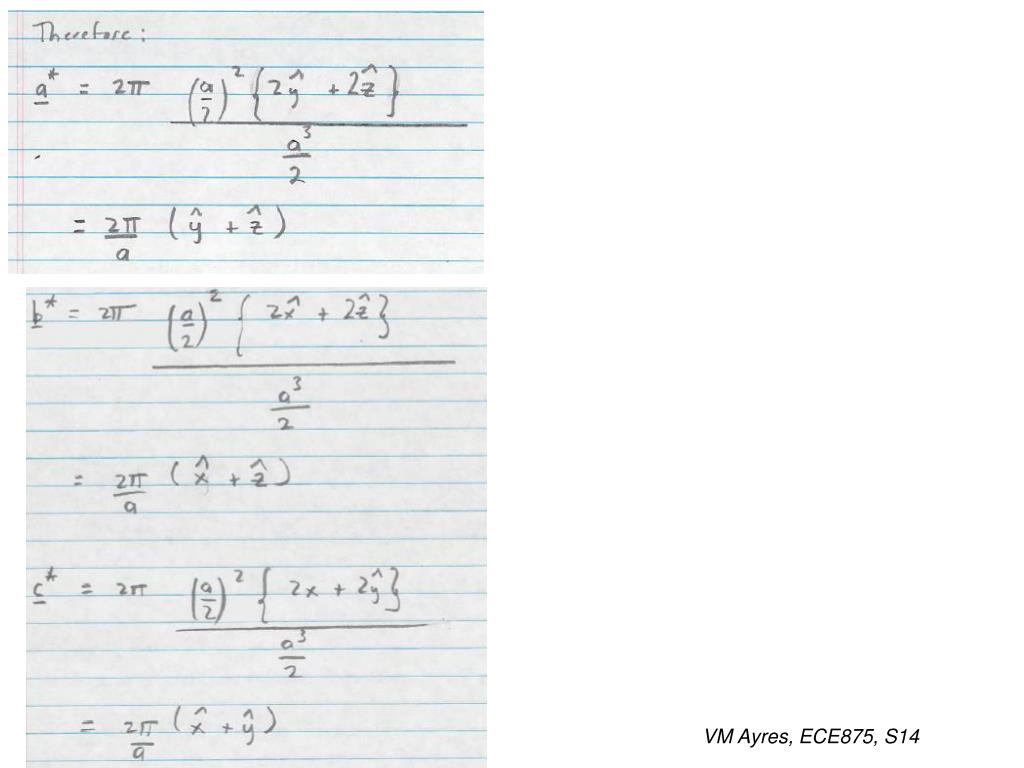 Therefore:
a* = 2π (a/2)² {2ŷ + 2ẑ}
a³/2
= 2π/a (ŷ + ẑ)
b* = 2π (a/2)² {2x̂ + 2ẑ}
a³/2
= 2π/a (x̂ + ẑ)
c* = 2π (a/2)² {2x + 2ŷ}
a³/2
= 2π/a (x̂ + ŷ)
VM Ayres, ECE875, S14